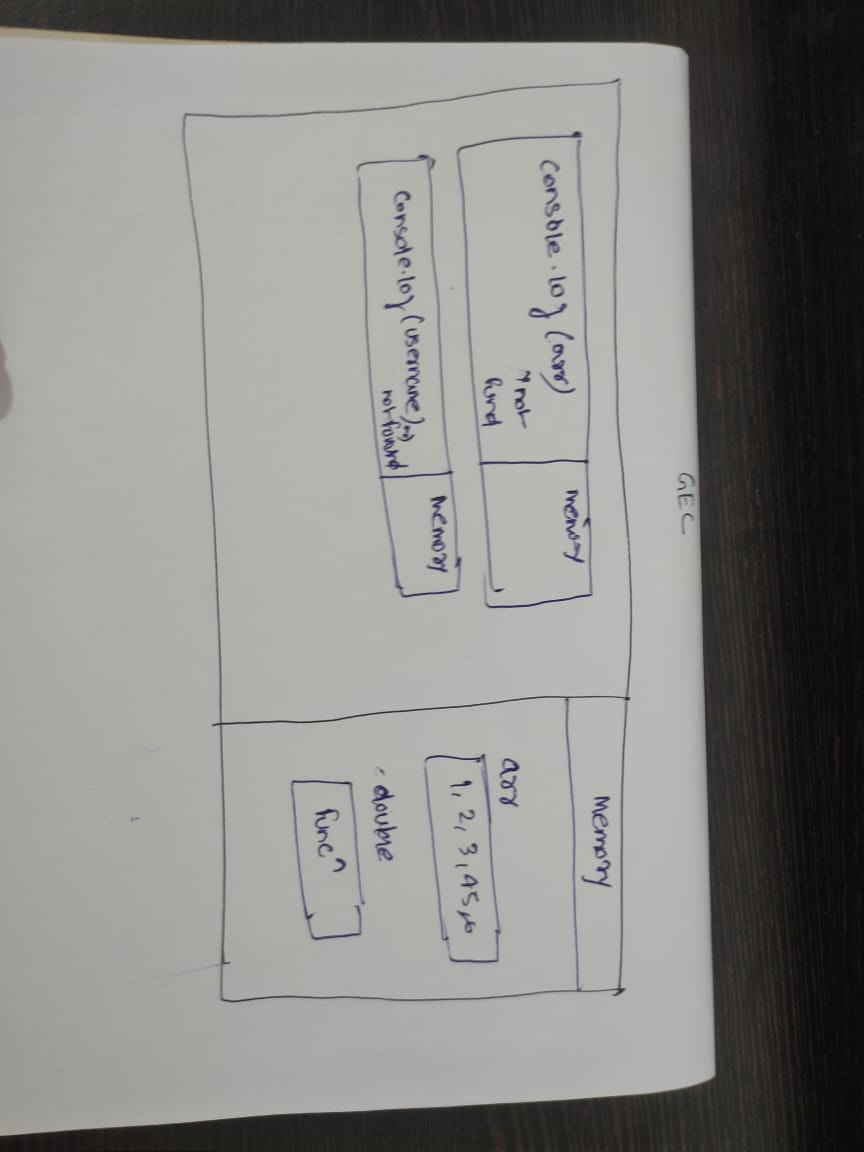 GEC
console.log (arr)
↑ not
fund
memory
console.log (username) →
not found
memory
memory
arr
1, 2, 3, 45, 6
double
funcⁿ